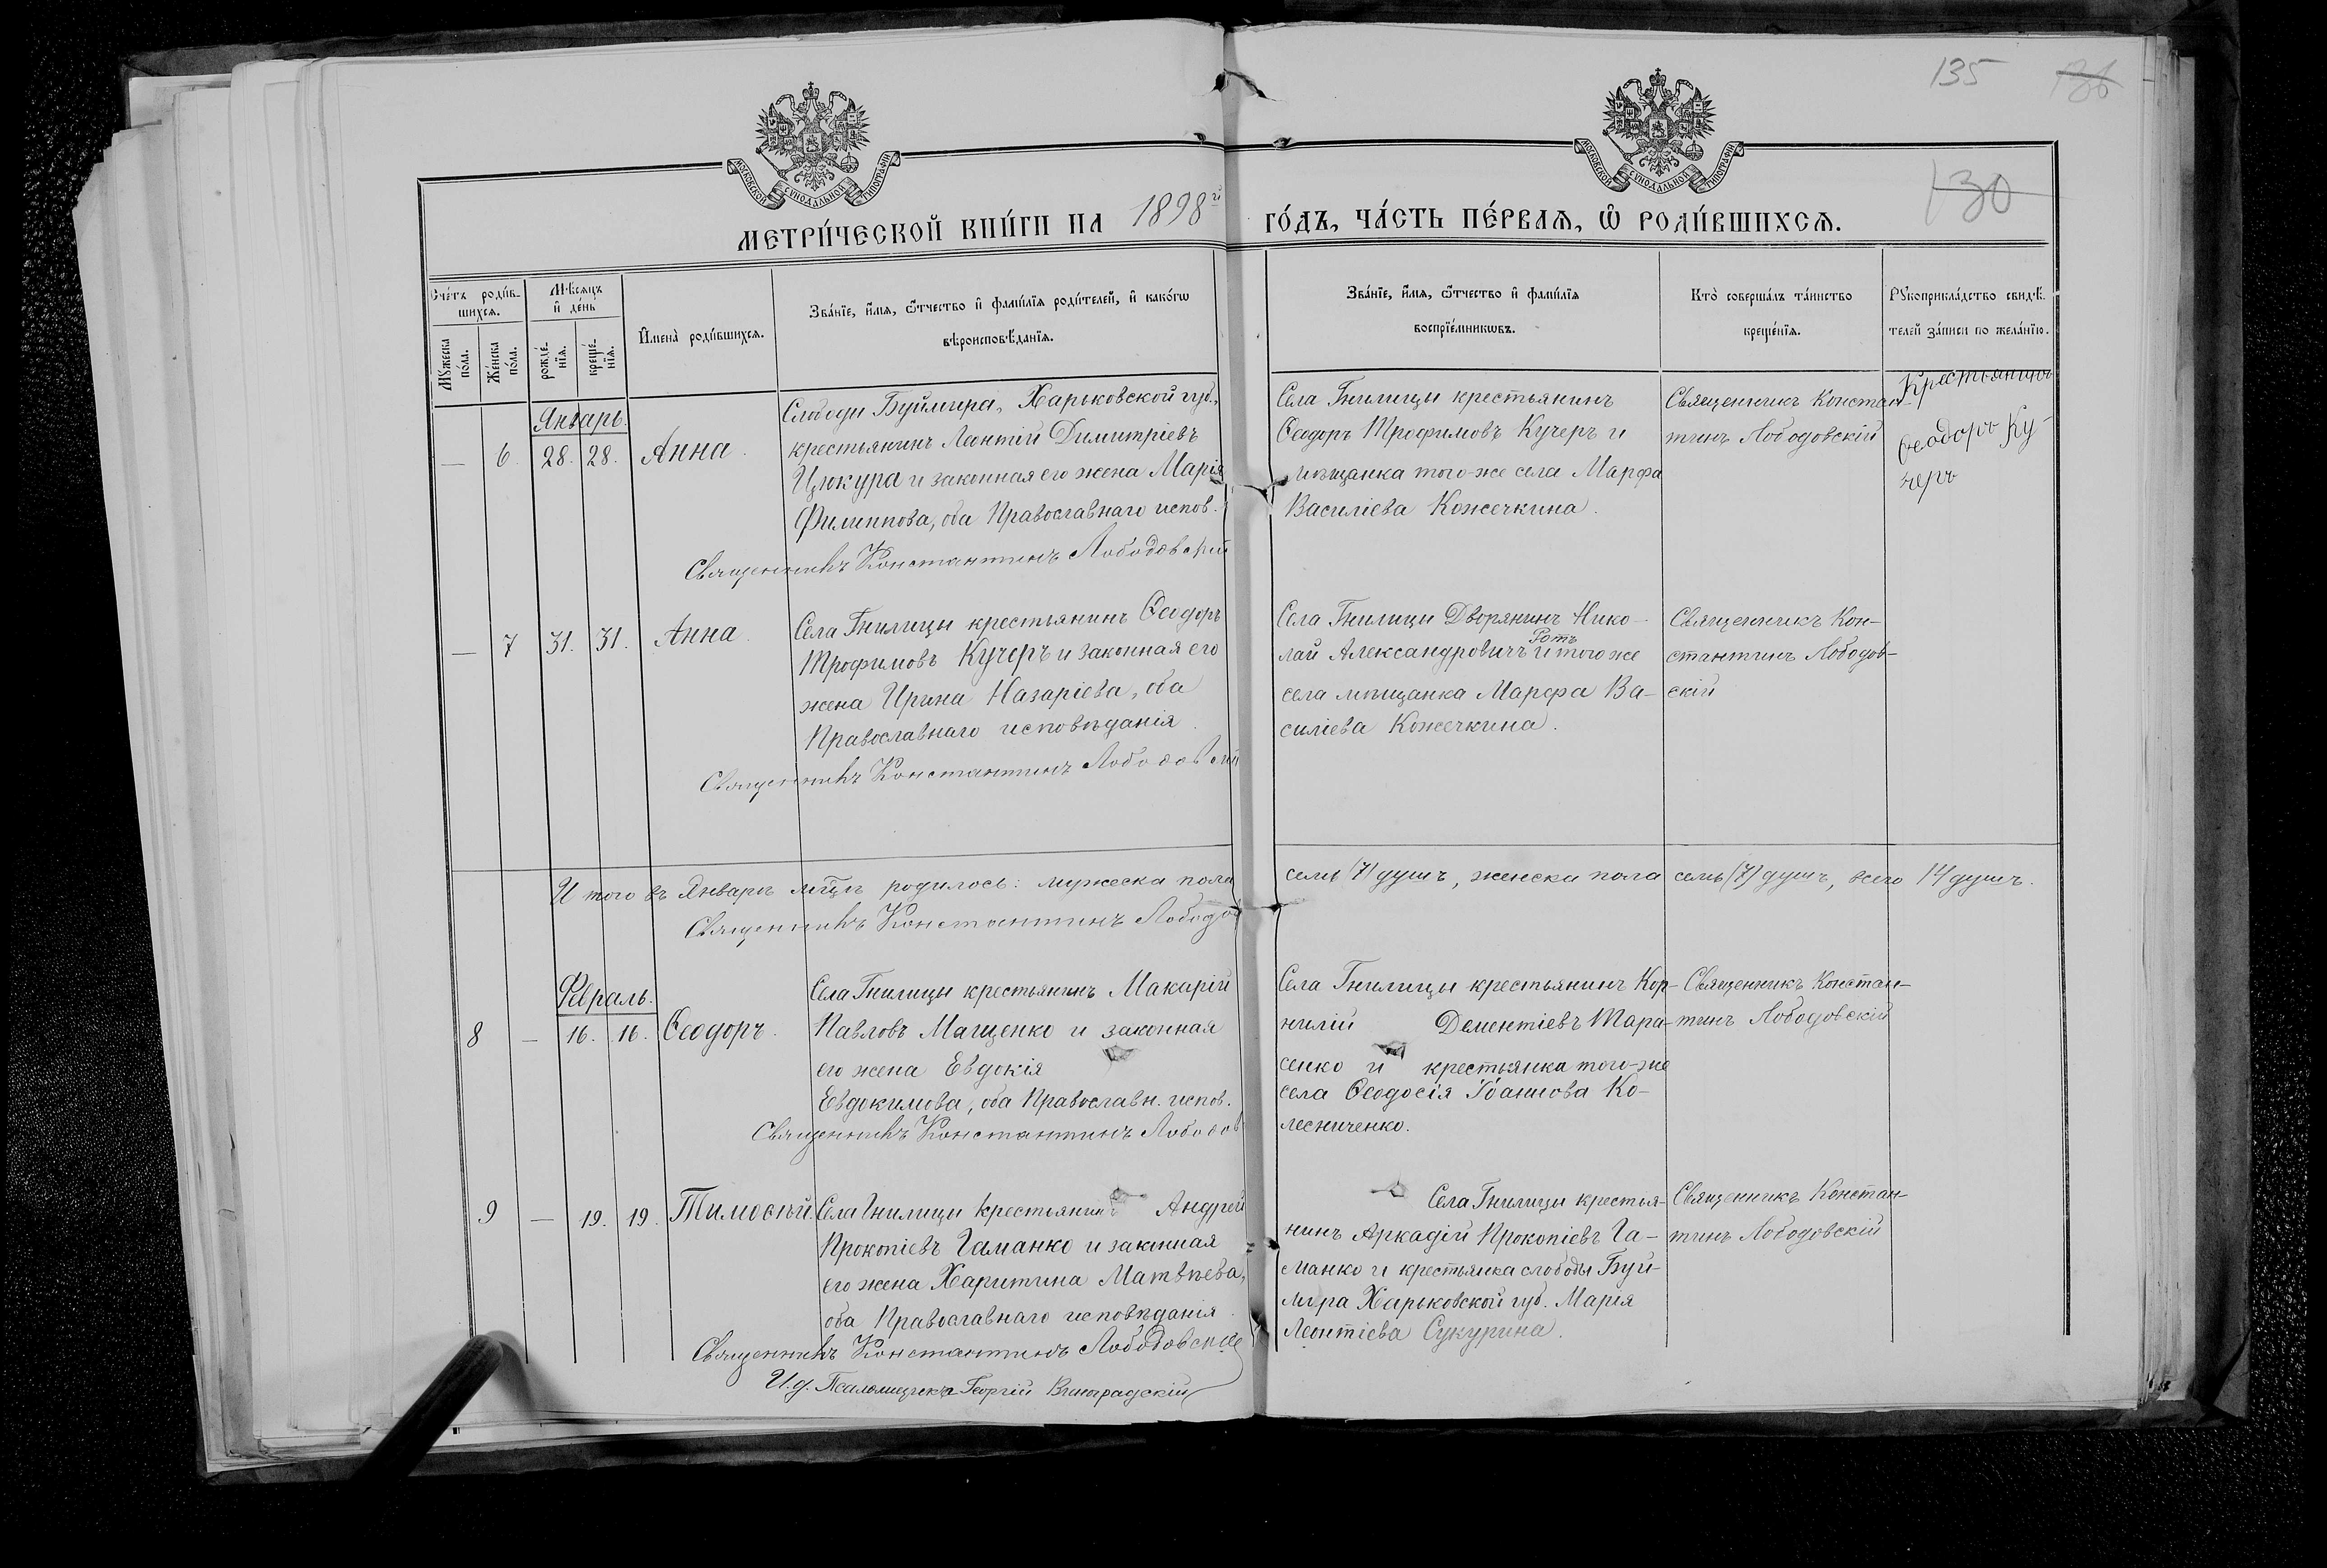 135 136
130
МОСКОВСКОЙ СѴНОДАЛЬНОЙ ТИПОГРАФІИ
МОСКОВСКОЙ СѴНОДАЛЬНОЙ ТИПОГРАФІИ
МЕТРИ́ЧЕСКОЙ КНИ́ГИ НА 1898й ГО́ДЪ, ЧА́СТЬ ПЕ́РВАѦ, Ѽ РОДИ́ВШИХСѦ.
Сче́тъ роди́в-
шихся.
Мѹжеска по́ла.
Же́нска по́ла.
Мѣсяцъ и де́нь
рожде́-
нїя.
креще́-
нїя.
Имена̀ роди́вшихся.
Зва́нїе, и́мя, ѻ҆́тчество и҆ фами́лїя роди́телей, и҆ како́гѡ
вѣроисповѣ́данїя.
Зва́нїе, и́мя, ѻ҆́тчество и҆ фами́лїя
воспрїе́мникѡвъ.
Кто̀ соверша́лъ та́инство
креще́нїя.
Рѹкоприкла́дство свидѣ́-
телей за́писи по жела́нїю.
Январь.
— 6. 28. 28. Анна.
Слободи Буймира, Харьковской губ.,
крестьянинъ Леонтій Димитріевъ
Цюкура и законная его жена Марія
Филиппова, оба Православнаго испов.
Священникъ Константинъ Лободовскій
Села Гнилицы крестьянинъ
Ѳеодоръ Трофимовъ Кучеръ и
мѣщанка того-же села Марѳа
Василіева Кожечкина.
Священникъ Констан-
тинъ Лободовскій
Крестьянинъ
Ѳеодоръ Ку-
черъ
— 7 31. 31. Анна.
Села Гнилицы крестьянинъ Ѳеодоръ
Трофимовъ Кучеръ и законная его
жена Ирина Назаріева, оба
Православнаго исповѣданія.
Священникъ Константинъ Лободовскій
Села Гнилицы Дворянинъ Нико-
Ротъ
лай Александровичъ и того же
села мѣщанка Марѳа Ва-
силіева Кожечкина.
Священникъ Кон-
стантинъ Лободов-
скій
И того въ Январѣ мцѣ родилось: мужеска пола семь (7) душъ, женска пола семь (7) душъ, всего 14 душъ.
Священникъ Константинъ Лободов
Февраль.
8 — 16. 16. Ѳеодоръ.
Села Гнилицы крестьянинъ Макарій
Павловъ Мащенко и законная
его жена Евдокія
Евдокимова, оба Православн. испов.
Священникъ Константинъ Лободов
Села Гнилицы крестьянинъ Кор-
нилій Дементіевъ Тара-
сенко и крестьянка того-же
села Ѳеодосія Іоаннова Ко-
лесниченко.
Священникъ Констан-
тинъ Лободовскій
9 — 19. 19. Тимоѳей.
Села Гнилицы крестьянинъ Андрей
Прокопіевъ Гаманко и законная
его жена Харитина Матѳѣева,
оба Православнаго исповѣданія.
Священникъ Константинъ Лободовскій
И.д. Псаломщика Георгій Виноградскій
Села Гнилицы крестья-
нинъ Аркадій Прокопіевъ Га-
манко и крестьянка слободы Буй-
мира Харьковской губ. Марія
Леонтіева Сукурина.
Священникъ Констан-
тинъ Лободовскій